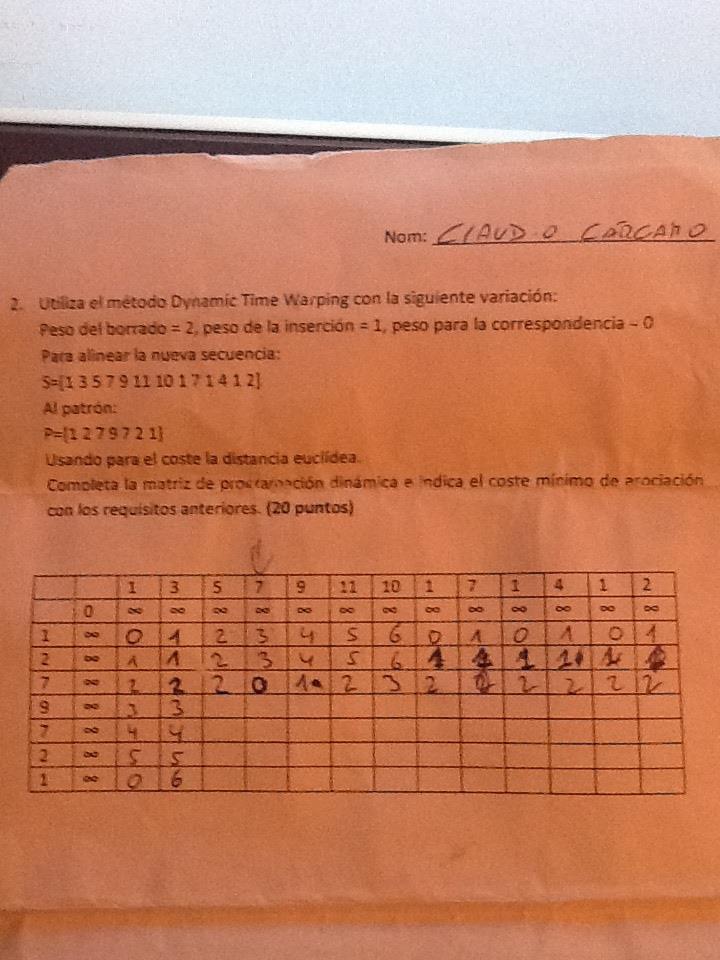 Nom: CLAUDIO CAÑCAMO
2. Utiliza el método Dynamic Time Warping con la siguiente variación:
Peso del borrado = 2, peso de la inserción = 1, peso para la correspondencia = 0
Para alinear la nueva secuencia:
S={1 3 5 7 9 11 10 1 7 1 4 1 2}
Al patrón:
P={1 2 7 9 7 2 1}
Usando para el coste la distancia euclídea.
Completa la matriz de programación dinámica e indica el coste mínimo de asociación
con los requisitos anteriores. (20 puntos)
1 3 5 7 9 11 10 1 7 1 4 1 2
0 ∞ ∞ ∞ ∞ ∞ ∞ ∞ ∞ ∞ ∞ ∞ ∞ ∞
1 ∞ 0 1 2 3 4 5 6 0 1 0 1 0 1
2 ∞ 1 1 2 3 4 5 6 1 1 1 1 1 1
7 ∞ 2 2 2 0 1 2 3 2 2 2 2 2
9 ∞ 3 3
7 ∞ 4 4
2 ∞ 5 5
1 ∞ 0 6